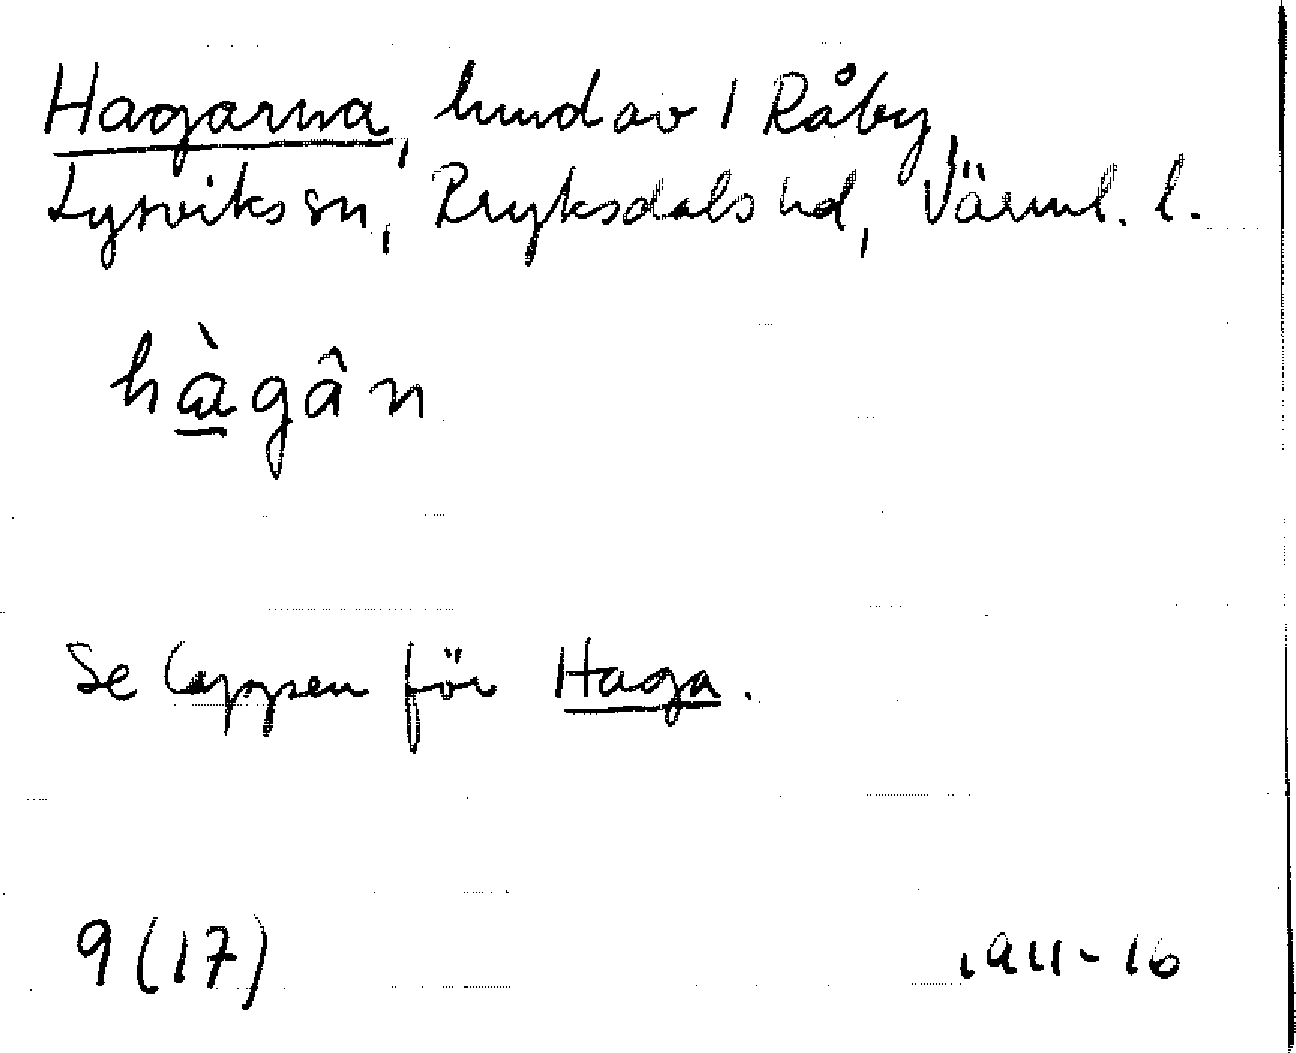 Hagarna, hmd av 1 Råby,
Lysviks sn, Fryksdals hd, Värml. l.
hàgân
Se lappen för Haga.
9 (17) 1911-16